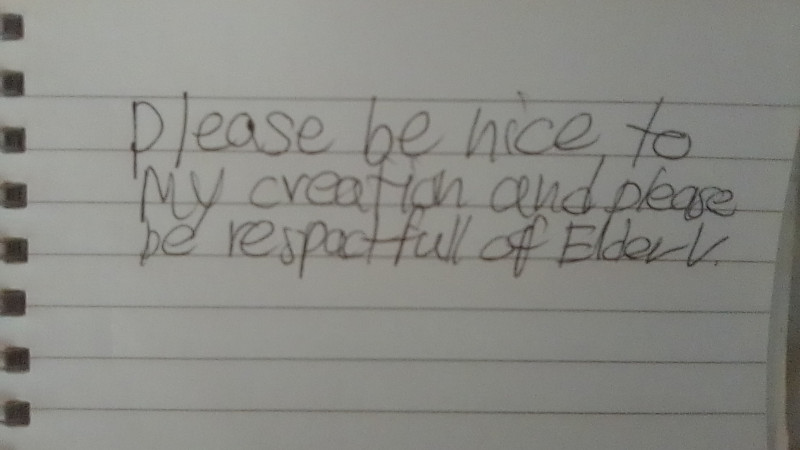 please be nice to
My creation and please
be respactfull of Elderly.